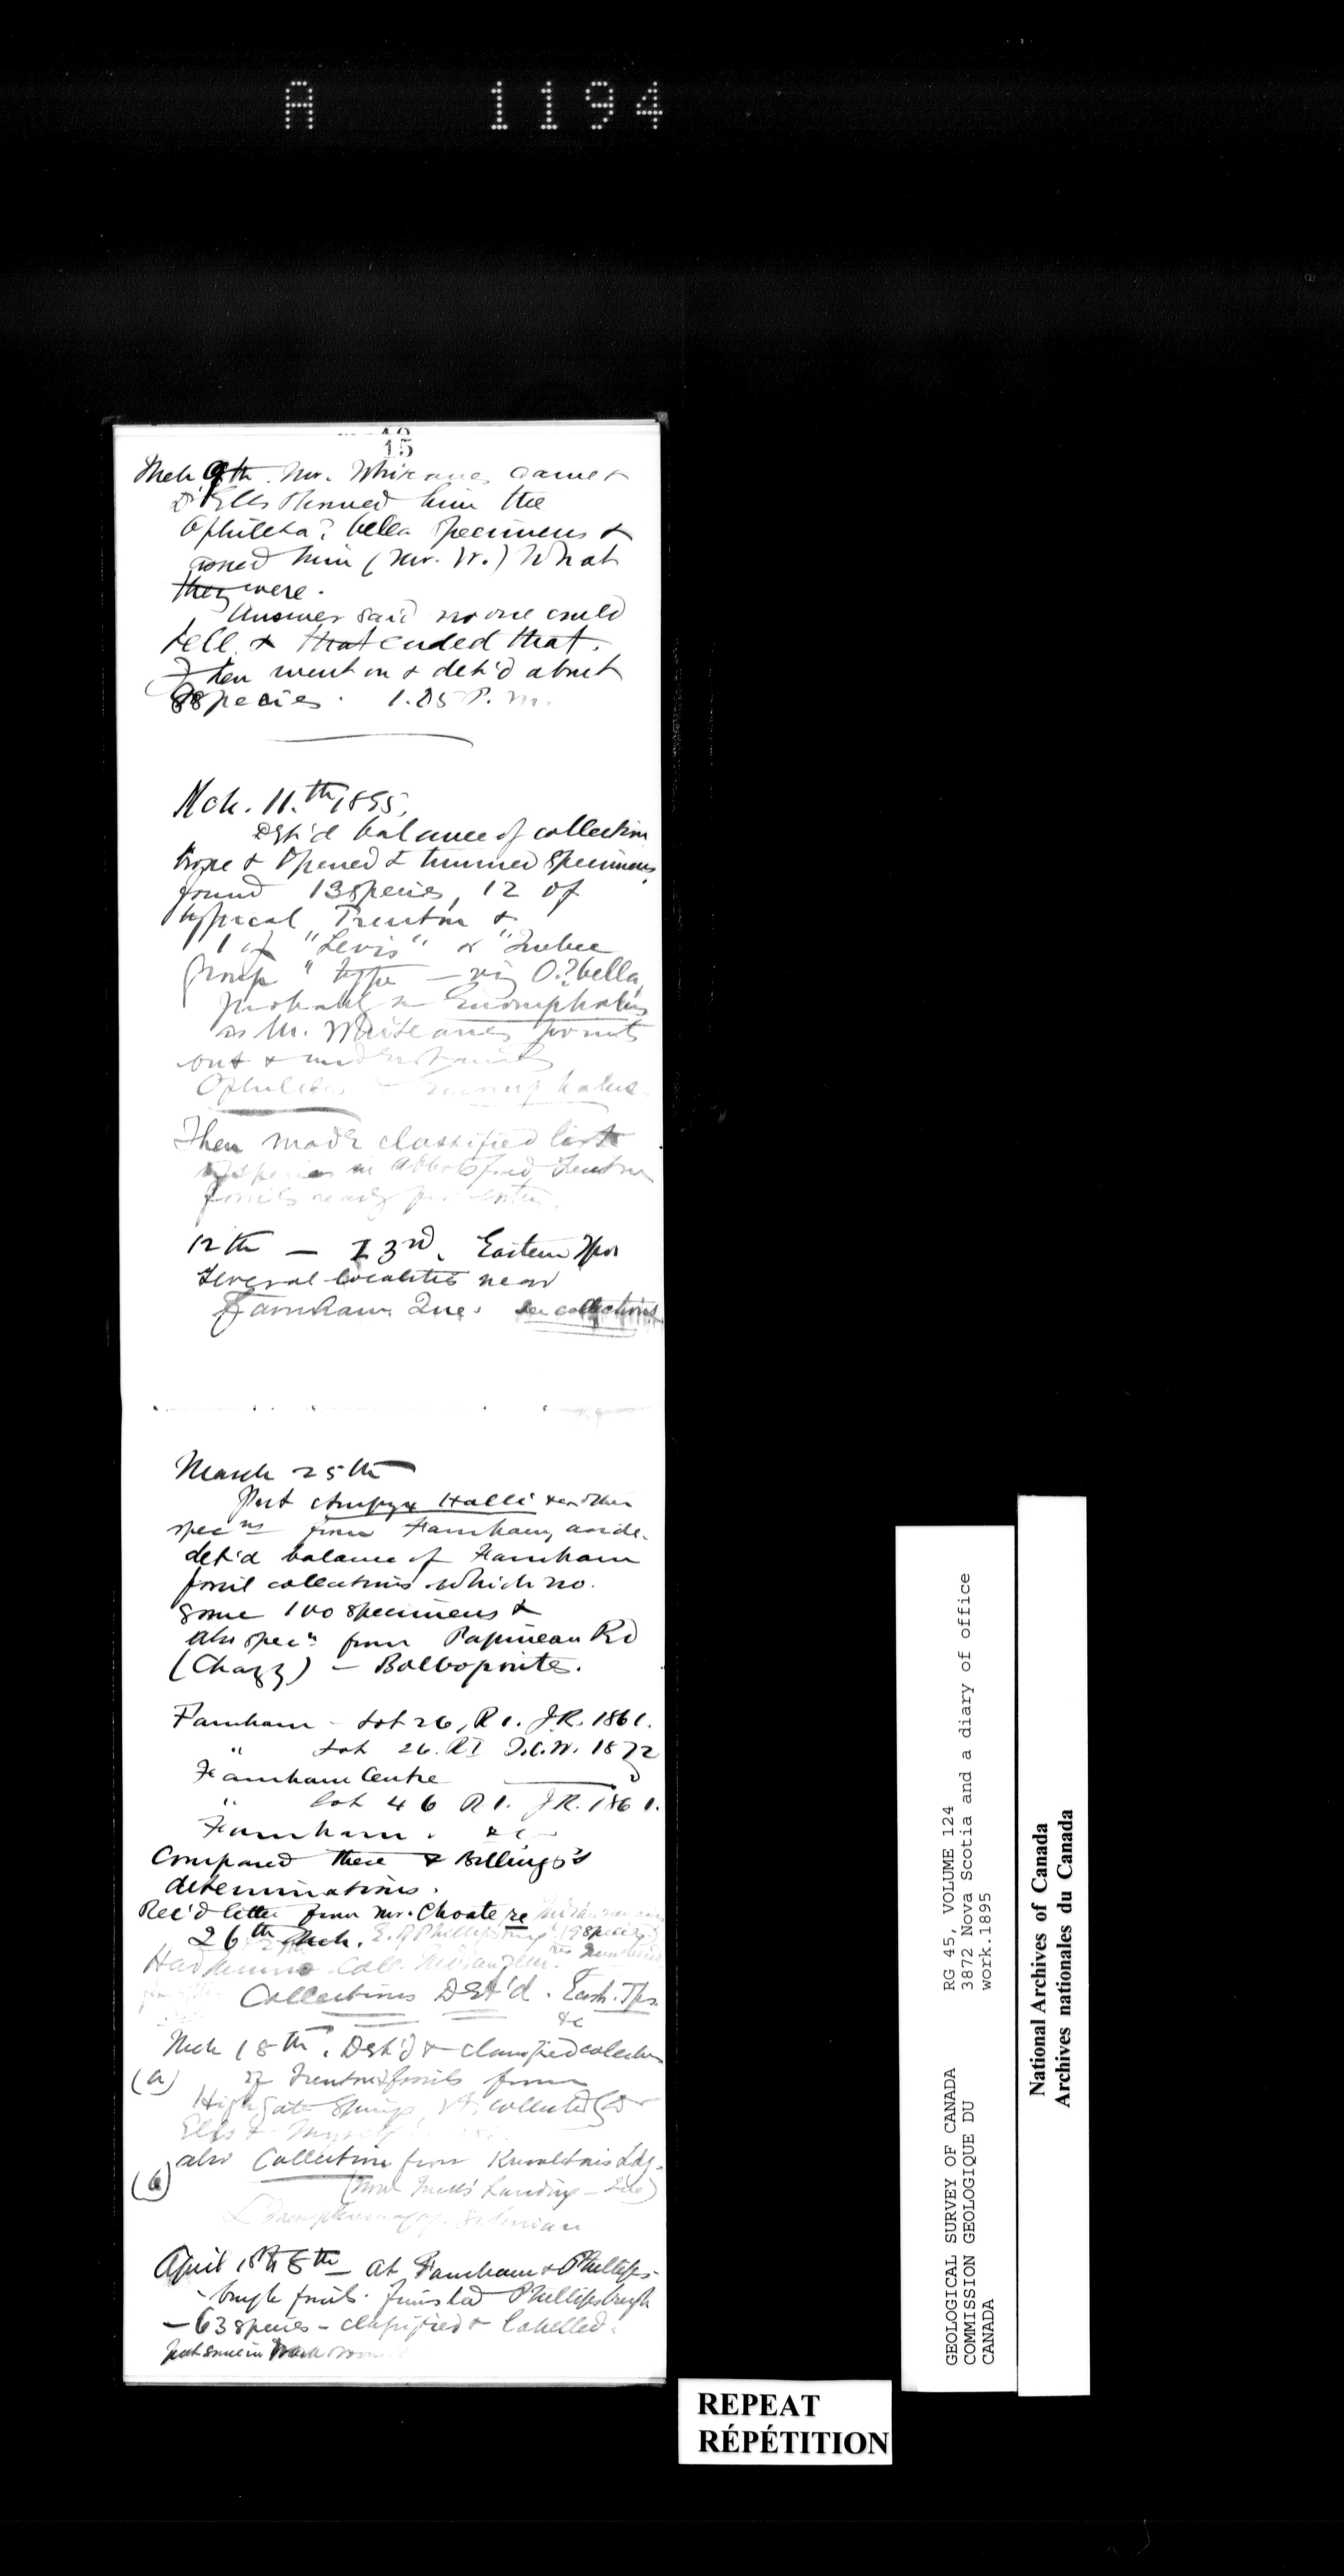 A 1194
15
Mch 9th. Mr. Whiteaves came &
Dr Ells showed him the
Ophileta? bella specimens &
asked him (Mr. W.) What
they were.
Answer said no one could
tell & that ended that.
I then went on & det'd about
8 species. 1.25 P.m.
Mch. 11.th 1895.
Det'd balance of collection
broke & opened & trimmed specimens
found 13 species, 12 of
typical Trenton &
1 of "Levis" or "Quebec
Group" type - viz O.? bella,
probably a Euomphalus
as Mr. Whiteaves points
out &
Ophileta - Euomphalus.
Then made classified list
of species in Abbotsford Trenton
fossils ready for
12th - 23rd. Eastern Tps
Several localities near
Farnham Que. see collections
March 25th
Put Ampyx Halli & another
specns from Farnham, aside.
det'd balance of Farnham
fossil collections which no.
some 100 specimens &
also specn from Papineau Rd
(Chazy) - Bolboporites.
Farnham - Lot 26, R 1. J.R. 1861.
" Lot 26. R1 T.C.W. 1872
Farnham Centre
" Lot 46 R1. J.R. 1861.
Farnham. &c -
Compared these & Billings's
determinations.
Rec'd letter from Mr. Choate re
26th Mch. E. of Phillipsburg (19 species)
Coll.
Collections Det'd. East. Tps.
&c
Mch 18th. Det'd & classified collection
(a) of Trenton fossils from
Highgate Springs, Vt. collected Dr
Ells & myself
also Collection from Knowlton's Ldg.
(b) (now Landing - Que)
L. Memphremagog. Silurian
April 1st 5th - at Farnham & Phillips-
-burgh fossils. finished Phillipsburgh
- 63 species - classified & labelled.
put some in
GEOLOGICAL SURVEY OF CANADA
COMMISSION GEOLOGIQUE DU
CANADA
RG 45, VOLUME 124
3872 Nova Scotia and a diary of office
work.1895
National Archives of Canada
Archives nationales du Canada
REPEAT
RÉPÉTITION